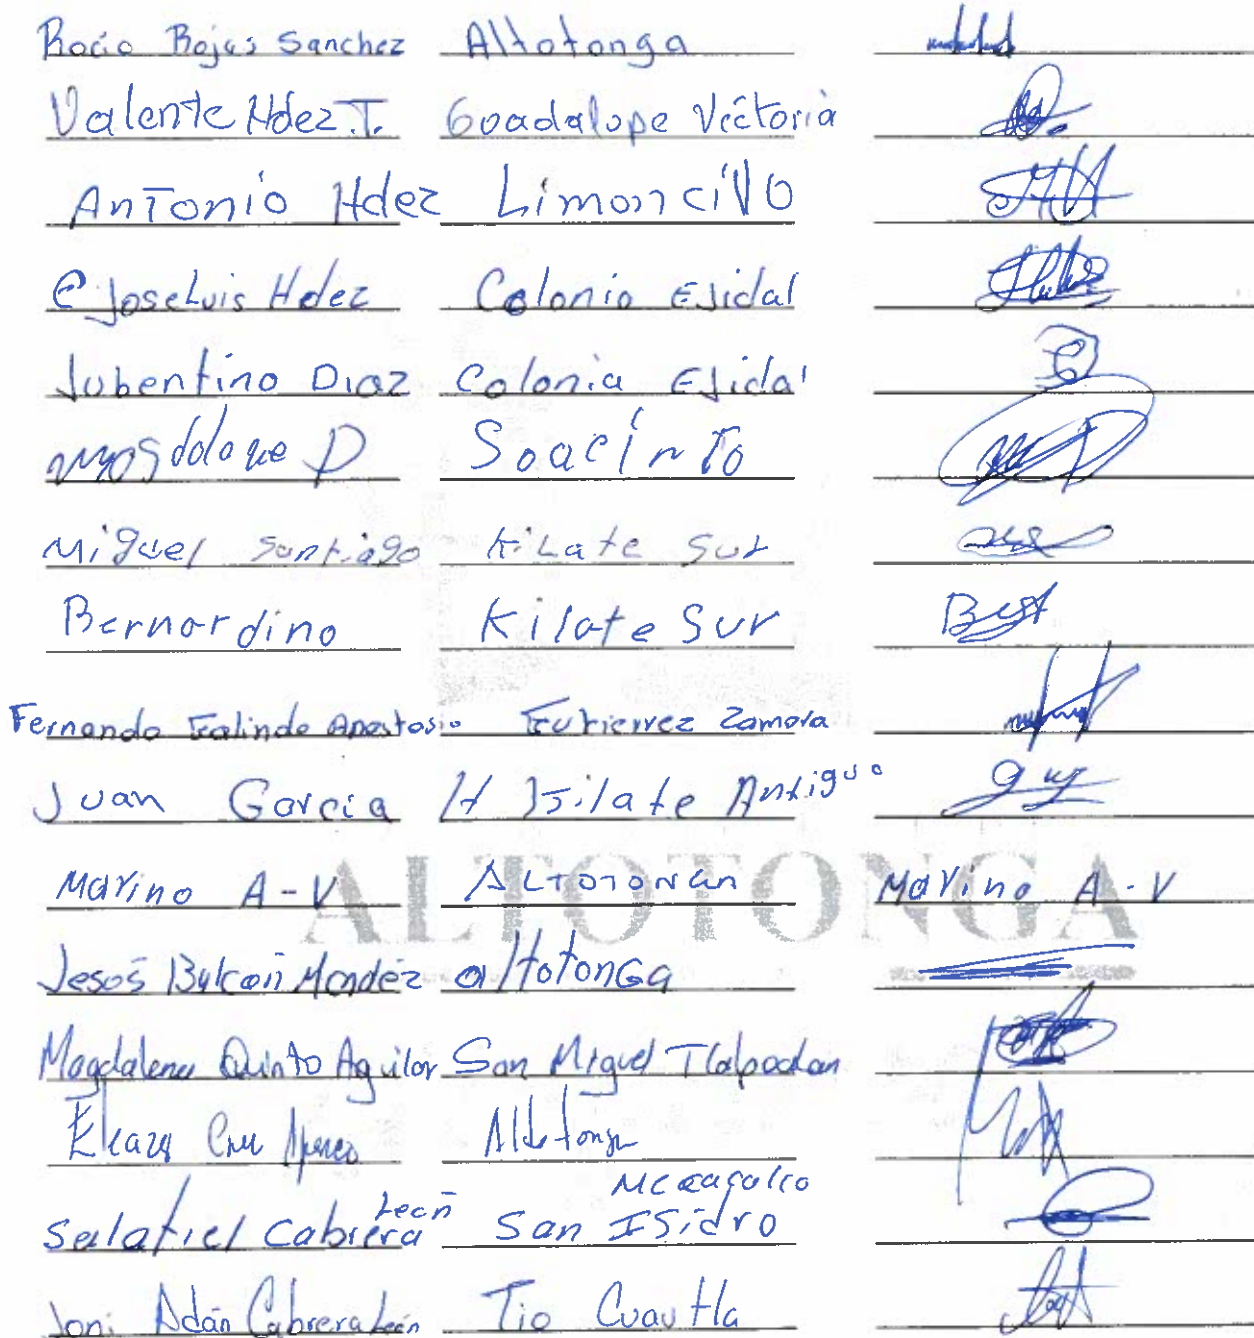 Rocio Rojas Sanchez Altotonga
Valente Hdez. T. Guadalupe Victoria
Antonio Hdez Limoncillo
C Jose Luis Hdez Colonia Ejidal
Jubentino Diaz Colonia Ejidal
D Soacinto
Miguel Santiago Kilate Sur
Bernardino Kilate Sur
Fernando Galindo Apastasio Gutierrez Zamora
Juan Garcia H Kilate Antiguo
Marino A-V Altotongan Marino A-V
ALTOTONGA
Jesos Balcon Mendez altotonGa
Magdalena Quinto Aguilar San Miguel Tlalpoalan
Cruz Altotonga
Salatiel Cabrera León San Isidro
Joni Adán Cabrera León Tio Cuautla